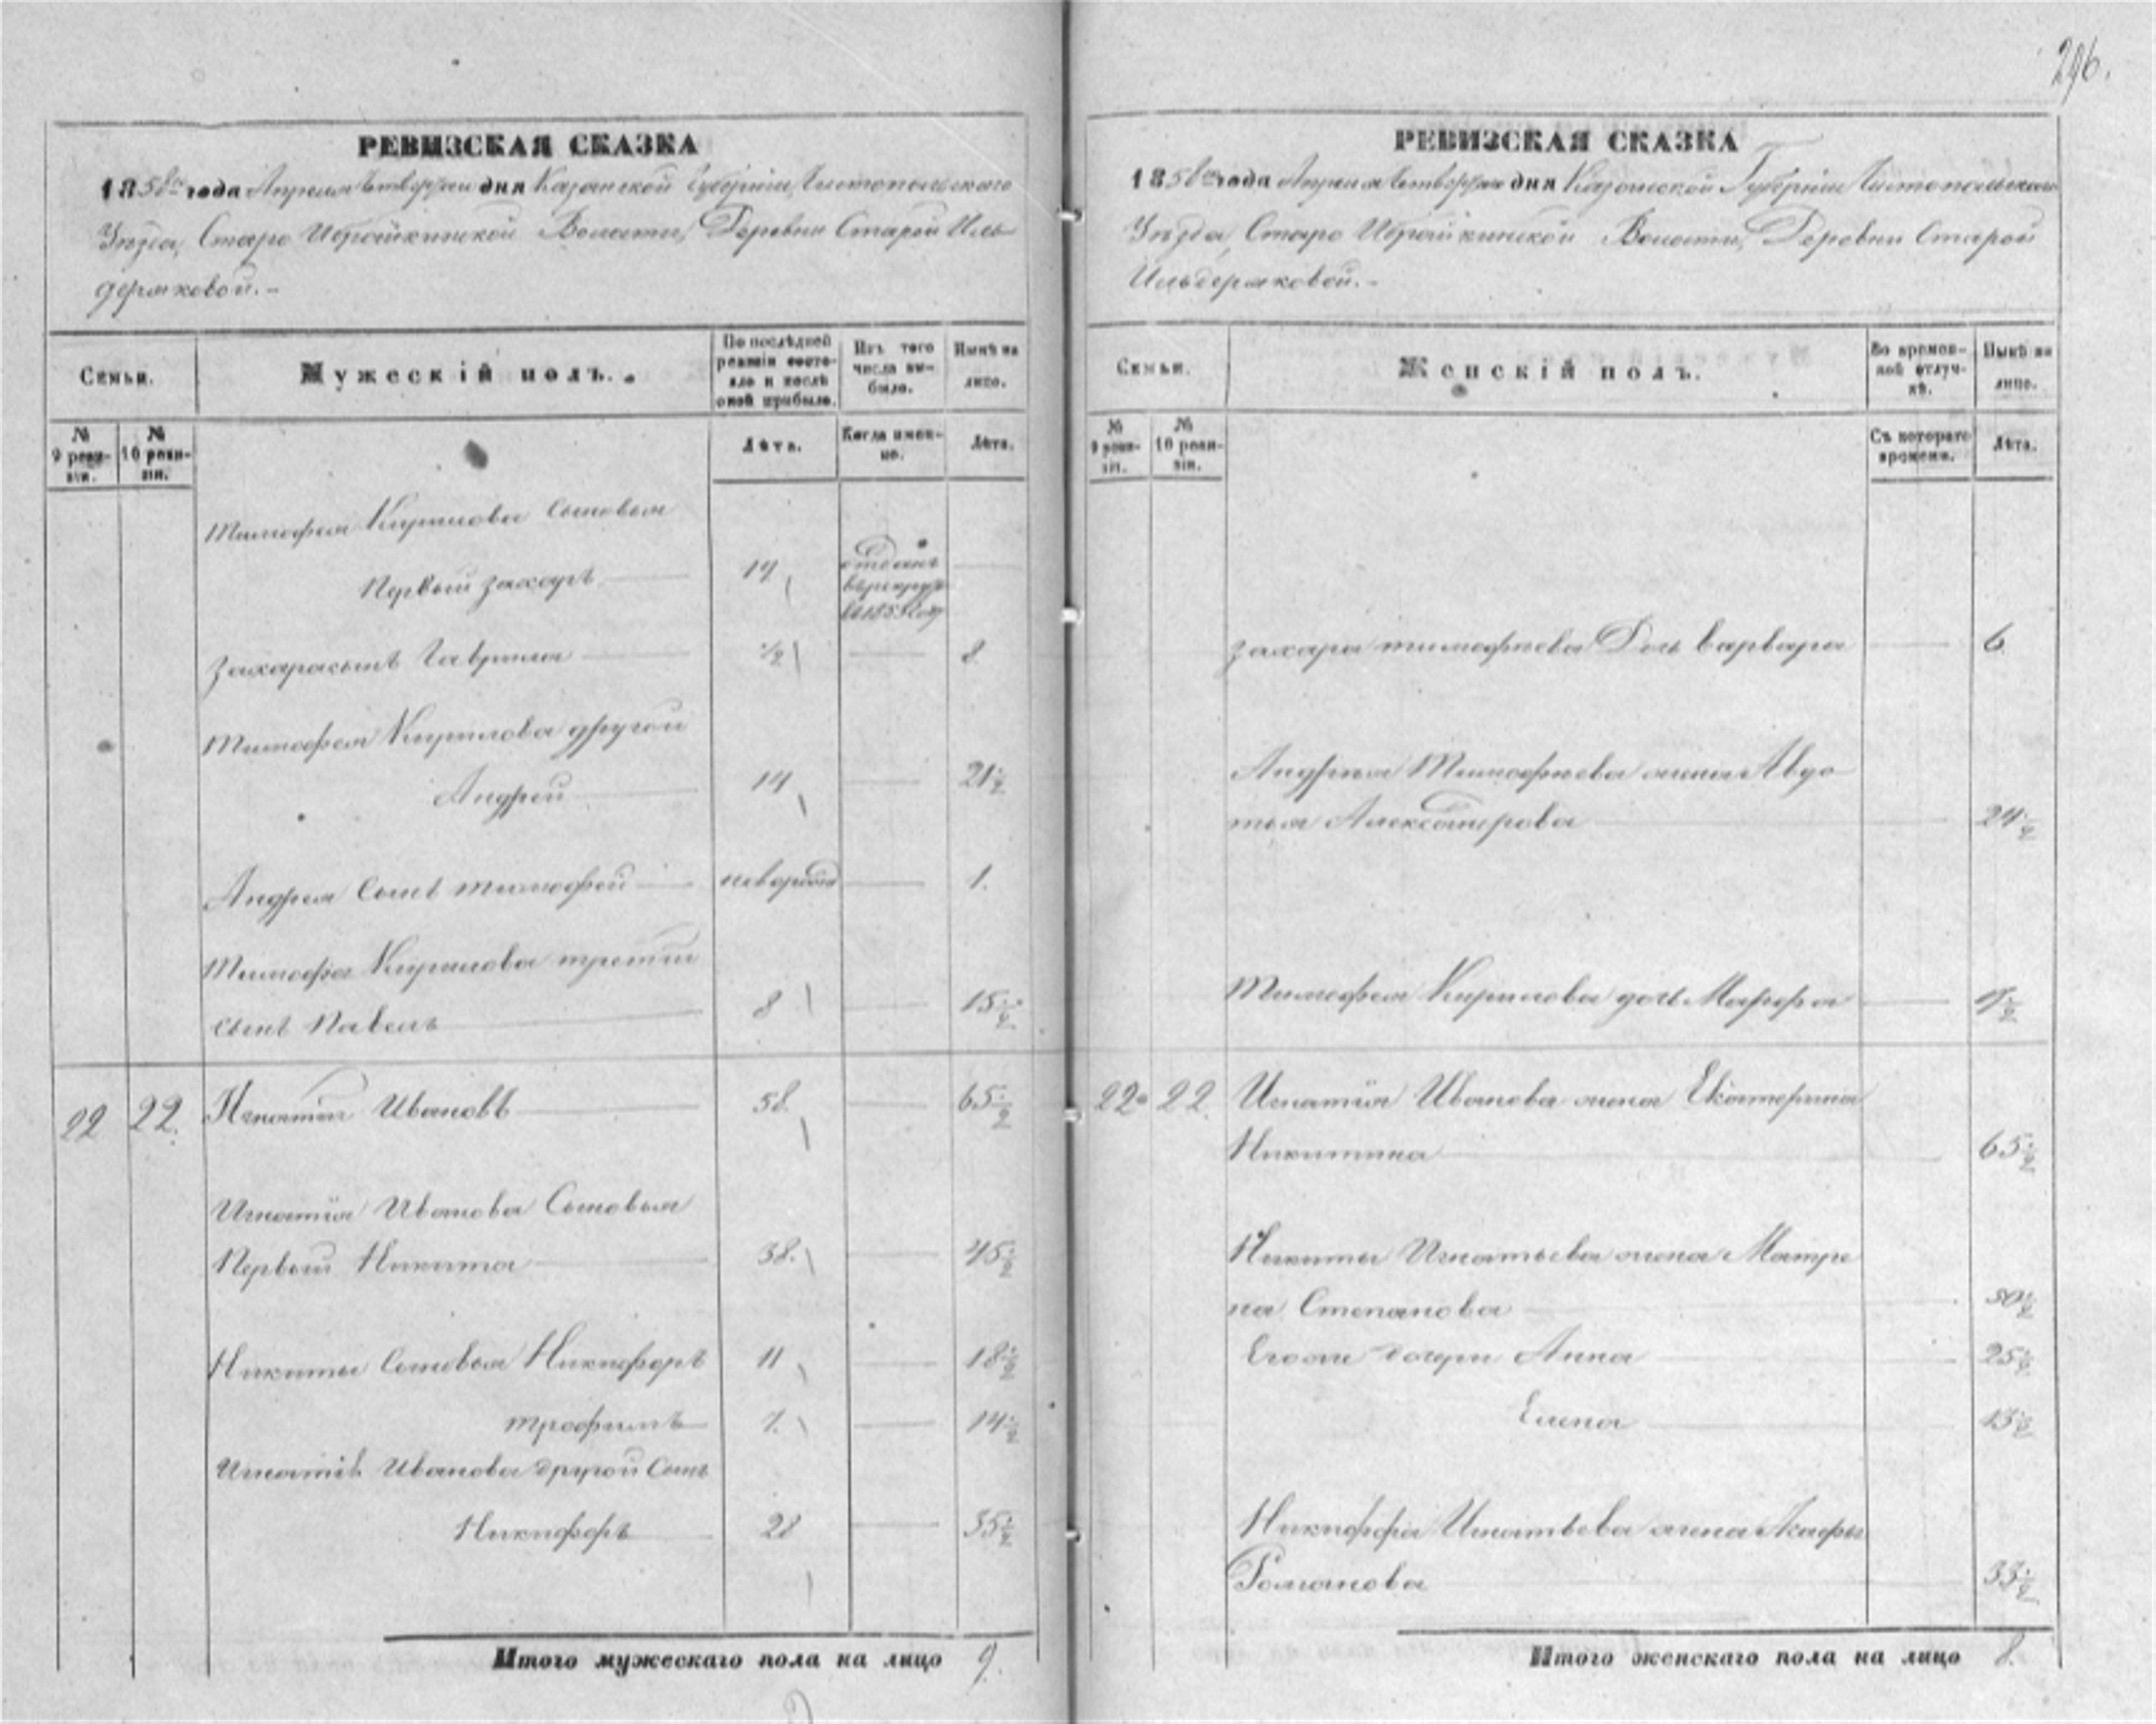 296.
РЕВИЗСКАЯ СКАЗКА
1858го года Апреля Четвертаго дня Казанской Губерніи, Чистопольскаго
Уѣзда, Старо Ибрайкинской Волости, Деревни Старой Иль
деряковой.-
Семьи.
Мужескій полъ.
По послѣдней ревизіи состояло и послѣ оной прибыло.
Изъ того числа выбыло.
Нынѣ на лицо.
№ 9 ревизіи.
№ 10 ревизіи.
Лѣта.
Когда именно.
Лѣта.
Тимофея Кирилова Сыновья
Первый Захаръ 19 отданъ въ рекруты
Захара сынъ Гаврила 1/2 8
Тимофея Кирилова другой
Андрей 14 21 1/2
Андрея Сынъ Тимофей новорожд 1.
Тимофея Кирилова третій
сынъ Павелъ 8 15 1/2
22 22. Игнатій Ивановъ 58. 65 1/2
Игнатія Иванова Сыновья
Первый Никита 38. 45 1/2
Никиты Сыновья Никифоръ 11 18 1/2
Трофимъ 7. 14 1/2
Игнатія Иванова другой Сынъ
Никифоръ 28 35 1/2
Итого мужескаго пола на лицо 9.
РЕВИЗСКАЯ СКАЗКА
1858го года Апреля Четвертаго дня Казанской Губерніи Чистопольскаго
Уѣзда, Старо Ибрайкинской Волости, Деревни Старой
Ильдеряковой.-
Семьи.
Женскій полъ.
Во временной отлучкѣ.
Нынѣ на лицо.
№ 9 ревизіи.
№ 10 ревизіи.
Съ котораго времени.
Лѣта.
Захара Тимофеева Дочь Варвара 6
Андрея Тимофеева жена Авдо
тья Александрова 24 1/2
Тимофея Кирилова дочь Марфа
22 22. Игнатія Иванова жена Екатерина
Никитина 65 1/2
Никиты Игнатьева жена Матре
на Степанова 50 1/2
Егоже дочери Анна 25 1/2
Елена 13 1/2
Никифора Игнатьева жена Агафья
Романова 33 1/2
Итого женскаго пола на лицо 8.